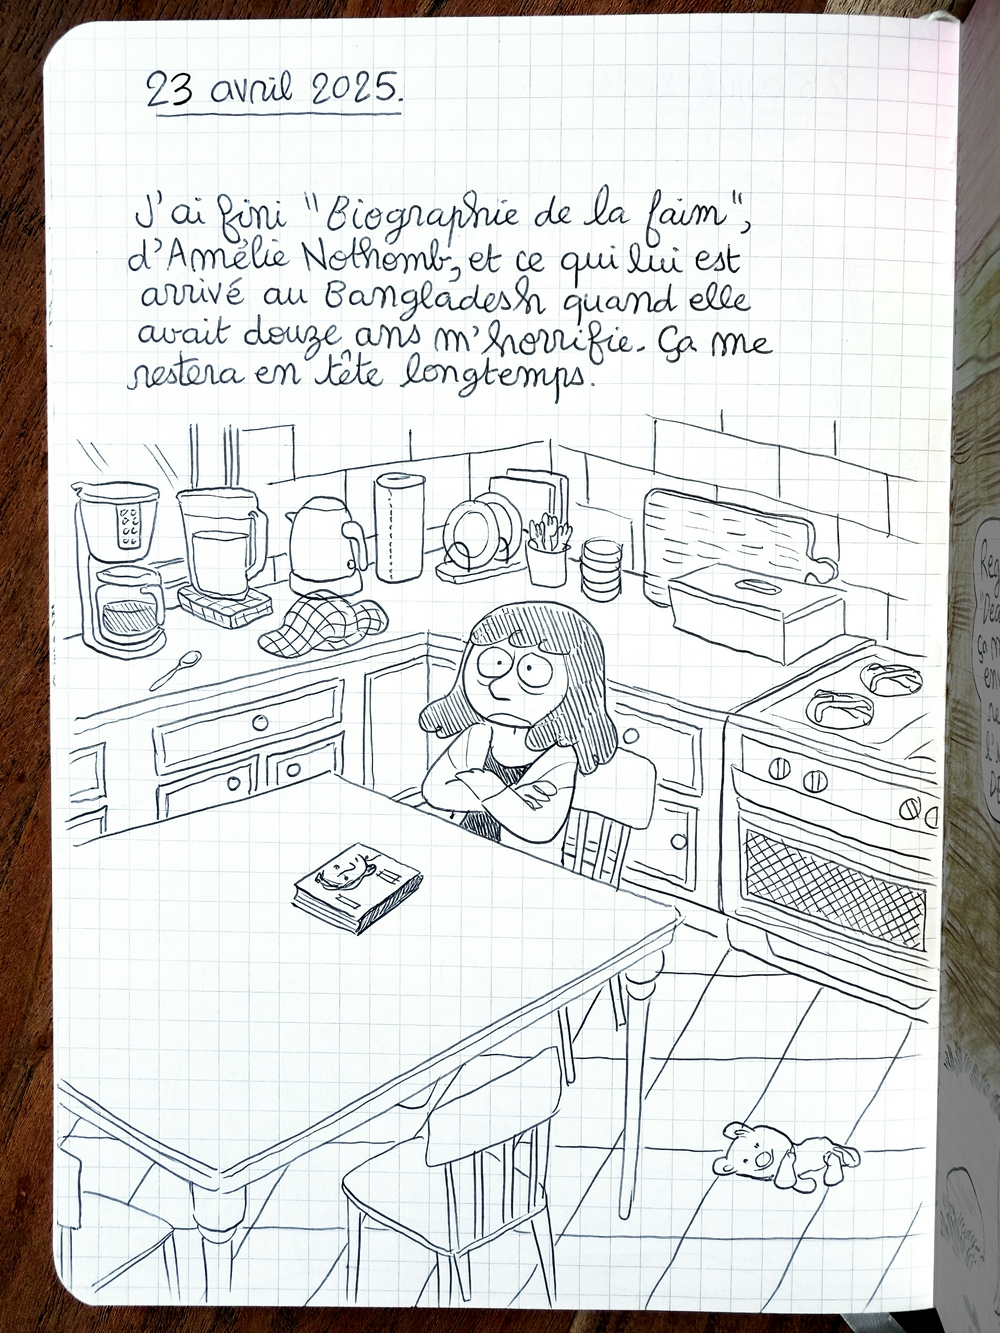 23 avril 2025.
J'ai fini "Biographie de la faim",
d'Amélie Nothomb, et ce qui lui est
arrivé au Bangladesh quand elle
avait douze ans m'horrifie. Ça me
restera en tête longtemps.